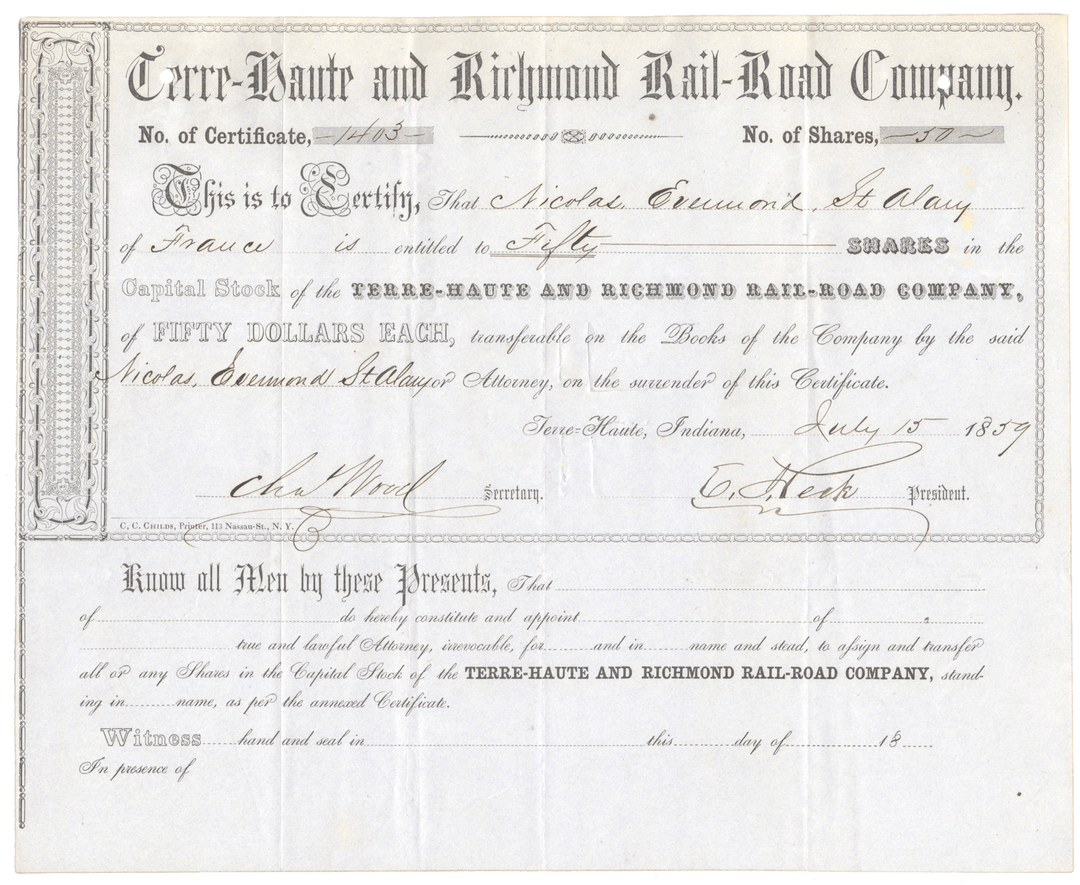 Terre-Haute and Richmond Rail-Road Company.
No. of Certificate, -1403- No. of Shares, -50-
This is to Certify, That Nicolas, Evermond, St Alary
of France is entitled to Fifty SHARES in the
Capital Stock of the TERRE-HAUTE AND RICHMOND RAIL-ROAD COMPANY,
of FIFTY DOLLARS EACH, transferable on the Books of the Company by the said
Nicolas, Evermond St Alary or Attorney, on the surrender of this Certificate.
Terre-Haute, Indiana, July 15 1859
Chas Wood Secretary. E. J. Peck President.
C. C. CHILDS, Printer, 113 Nassau-St., N. Y.
Know all Men by these Presents, That
of do hereby constitute and appoint of
true and lawful Attorney, irrevocable, for and in name and stead, to assign and transfer
all or any Shares in the Capital Stock of the TERRE-HAUTE AND RICHMOND RAIL-ROAD COMPANY, stand-
ing in name, as per the annexed Certificate.
Witness hand and seal in this day of 18
In presence of